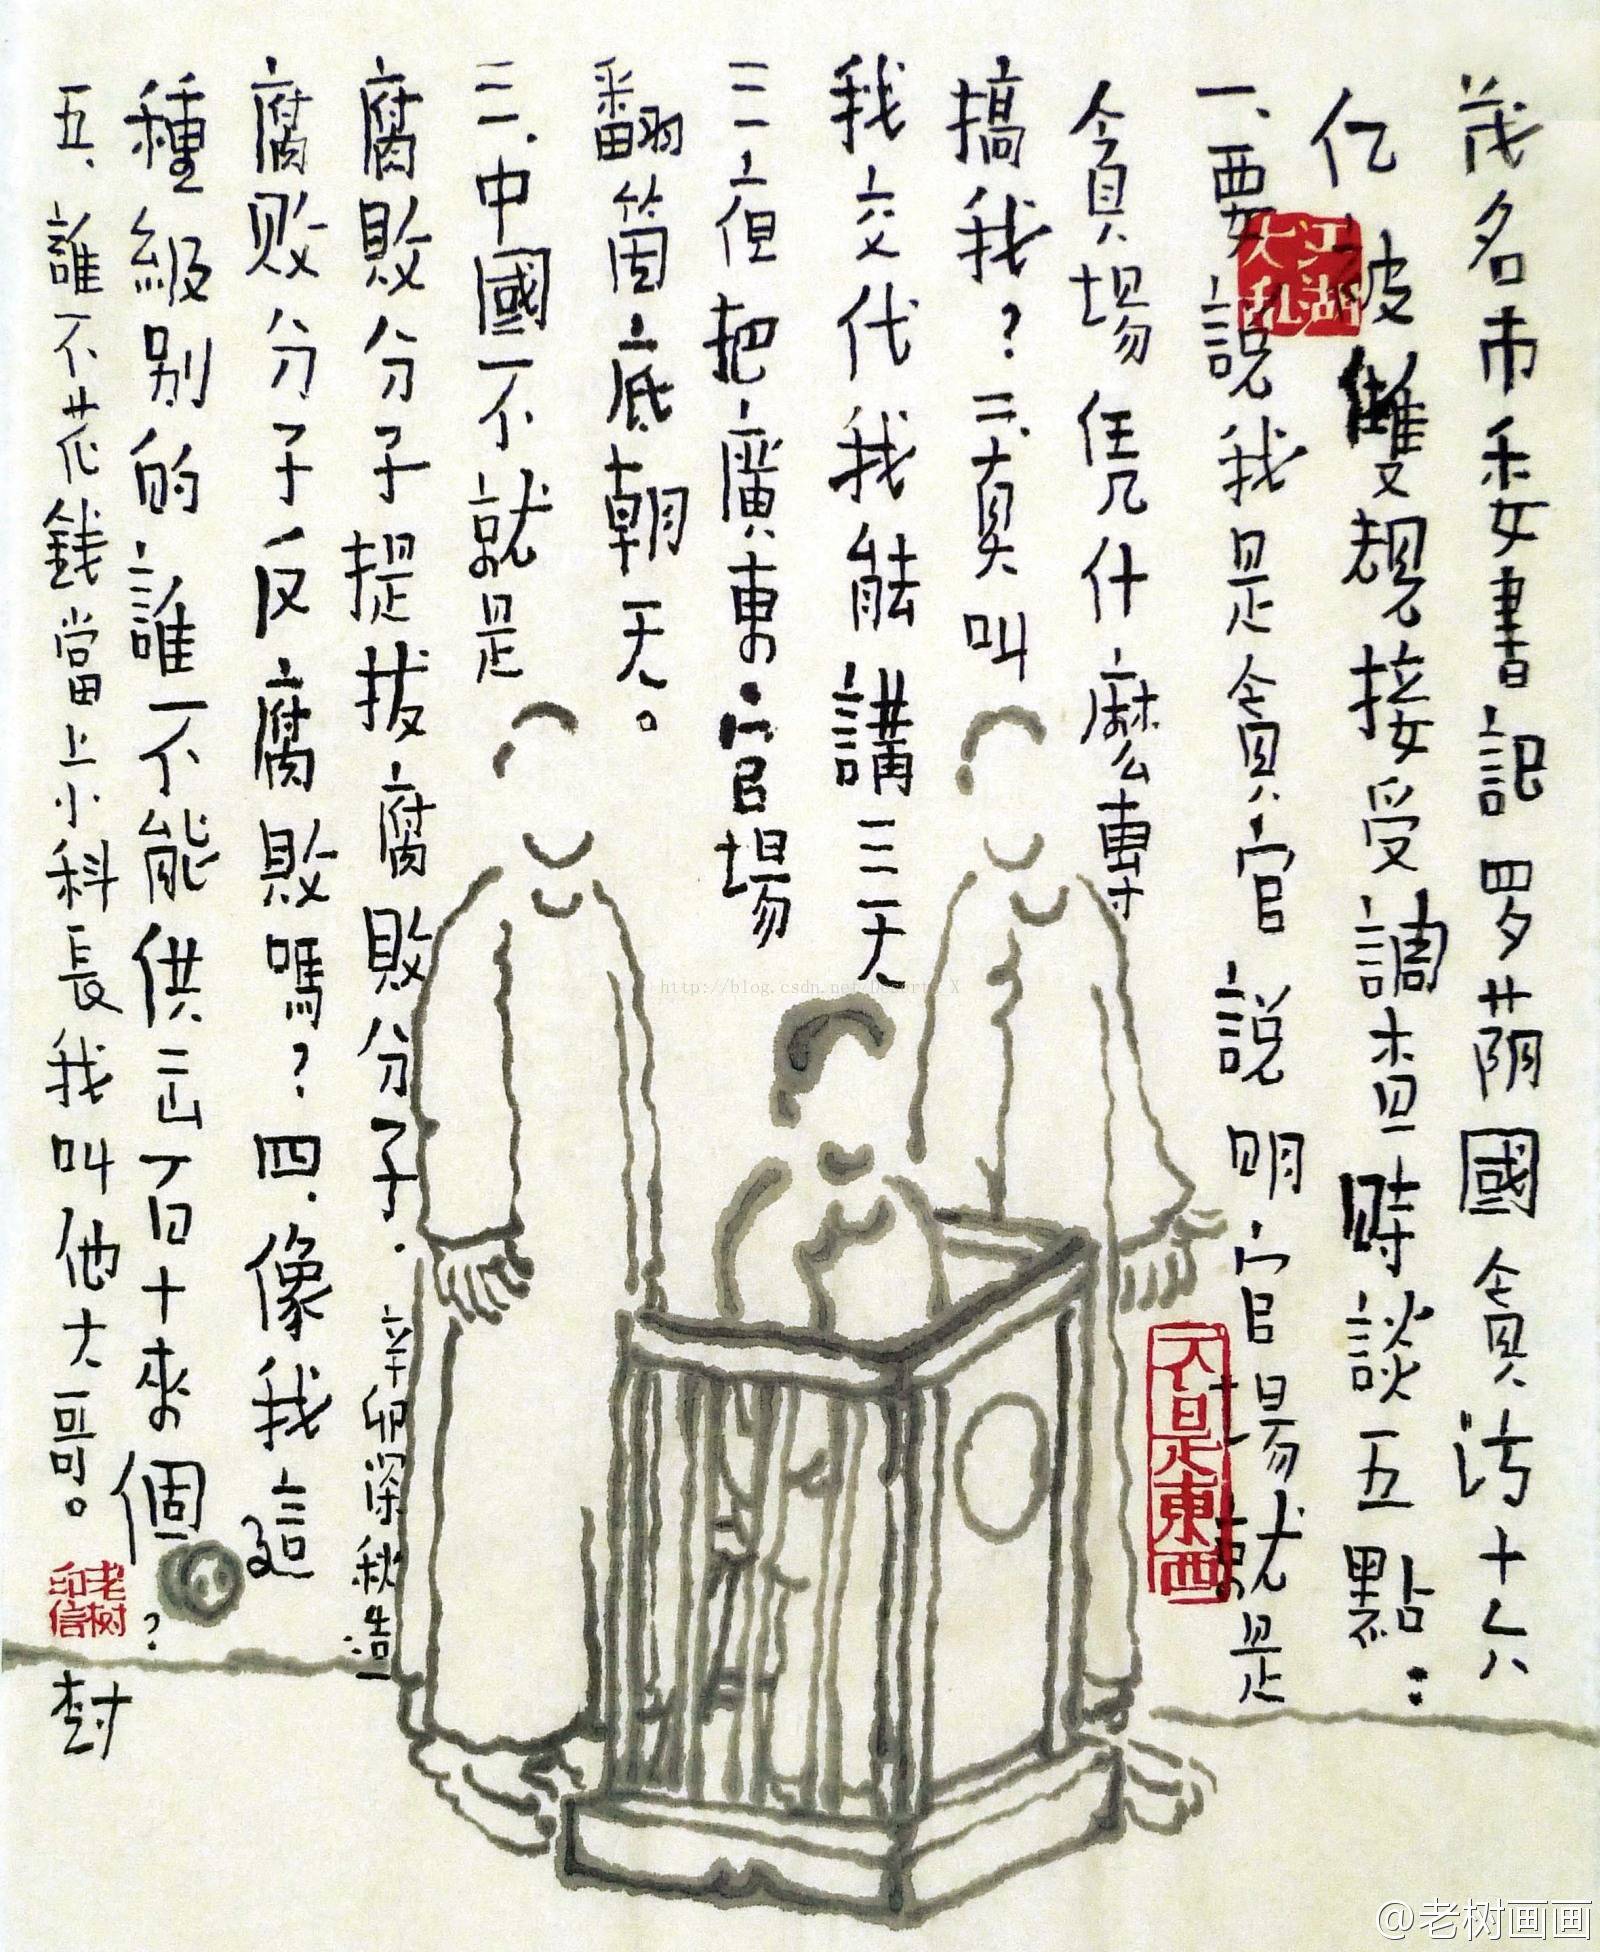 茂名市委書記罗荫國貪污十六
亿被雙规接受調查時談五點：
一、要説我是貪官説明官場就是
貪場凭什麼專
搞我？二、真叫
我交代我能講三天
三夜把廣東官場
翻箇底朝天。
三、中國不就是
腐敗分子提拔腐敗分子．
腐败分子反腐敗嗎？四、像我這
種級别的誰不能供出百十來個？
五、誰不花錢當上小科長我叫他大哥。
辛卯深秋造
树
江湖大乱
不是東西
老树印信
http://blog.csdn.net/Desert_X
@老树画画